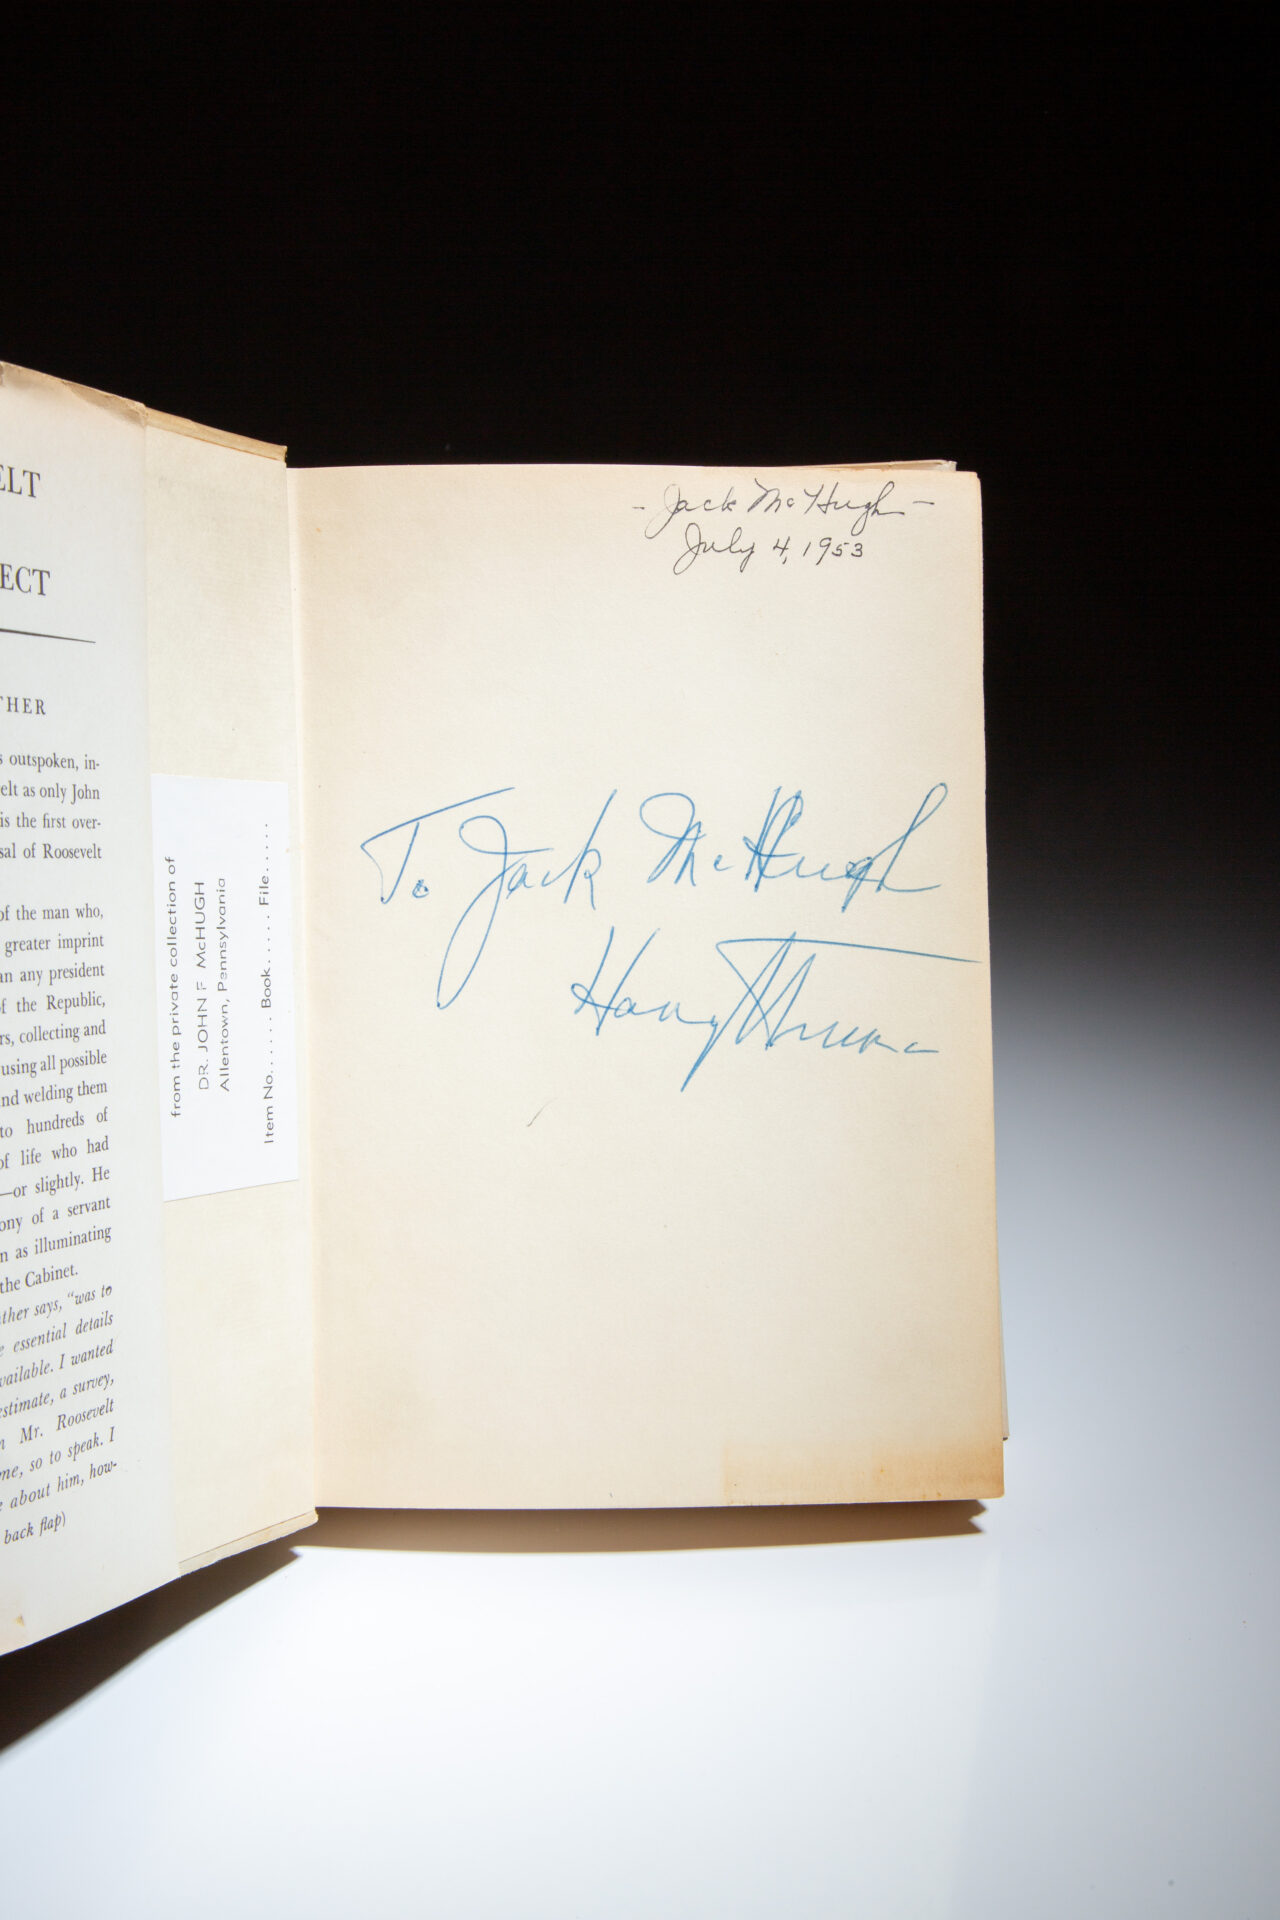 ELT
ECT
THER
s outspoken, in-
elt as only John
is the first over-
sal of Roosevelt
of the man who,
greater imprint
an any president
of the Republic,
rs, collecting and
using all possible
nd welding them
to hundreds of
of life who had
—or slightly. He
ony of a servant
n as illuminating
the Cabinet.
ther says, “was to
e essential details
vailable. I wanted
estimate, a survey,
n Mr. Roosevelt
me, so to speak. I
e about him, how-
back flap)
from the private collection of
DR. JOHN F McHUGH
Allentown, Pennsylvania
Item No. . . . . . Book. . . . . . File. . . . . .
- Jack McHugh -
July 4, 1953
To Jack McHugh
Harry Truman